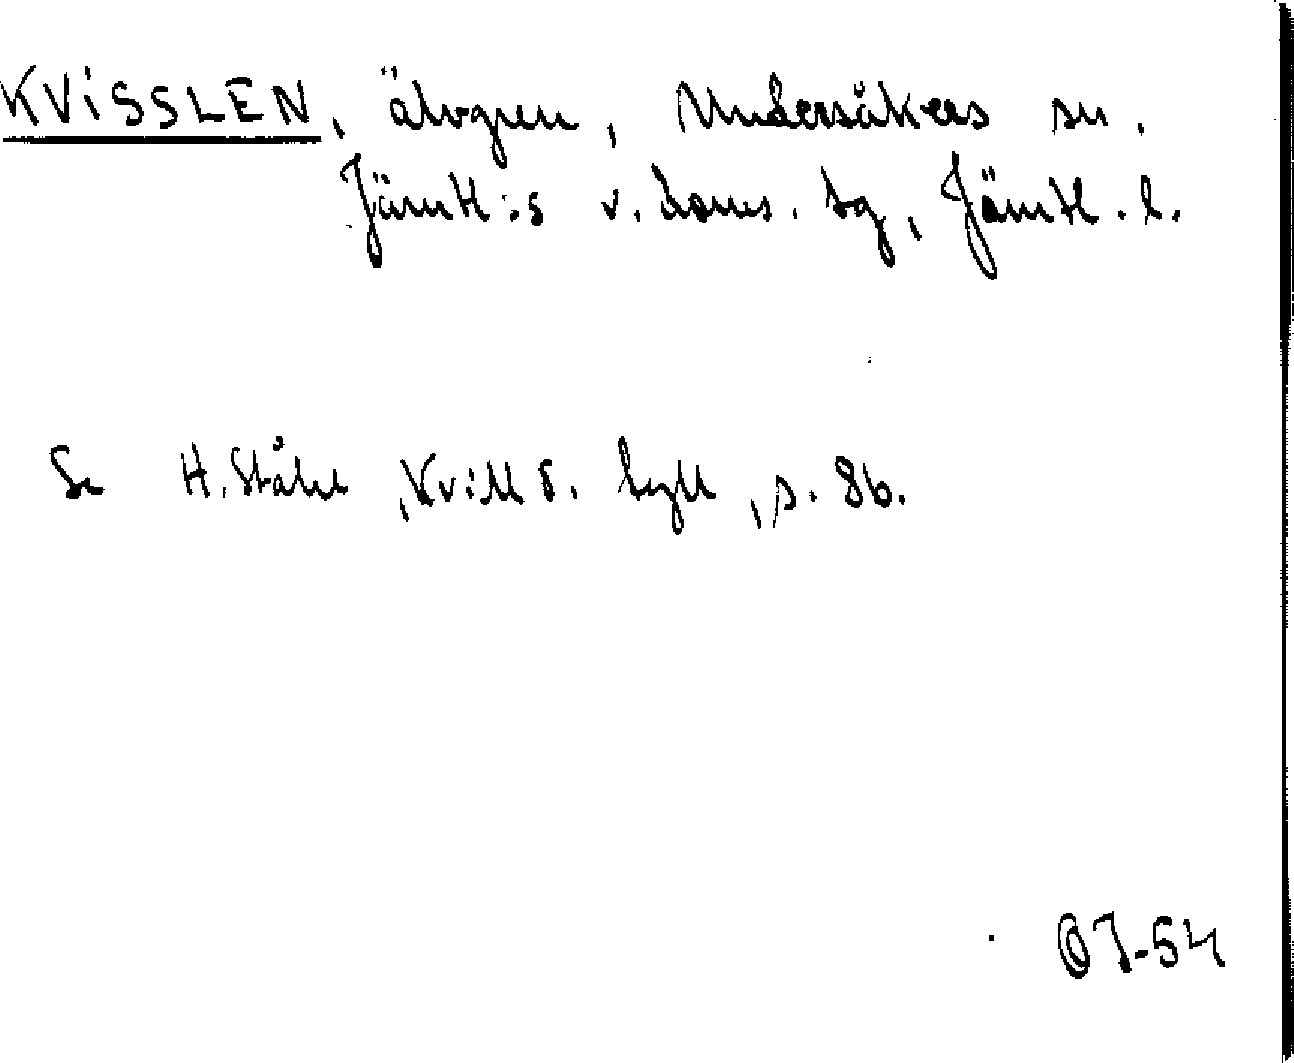 KVISSLEN, älvgren, Undersåkers sn,
Jämtl:s v. doms. tg, Jämtl. l.
Se H. Ståhl, Kvill o. tyll, s. 86.
OJ-54